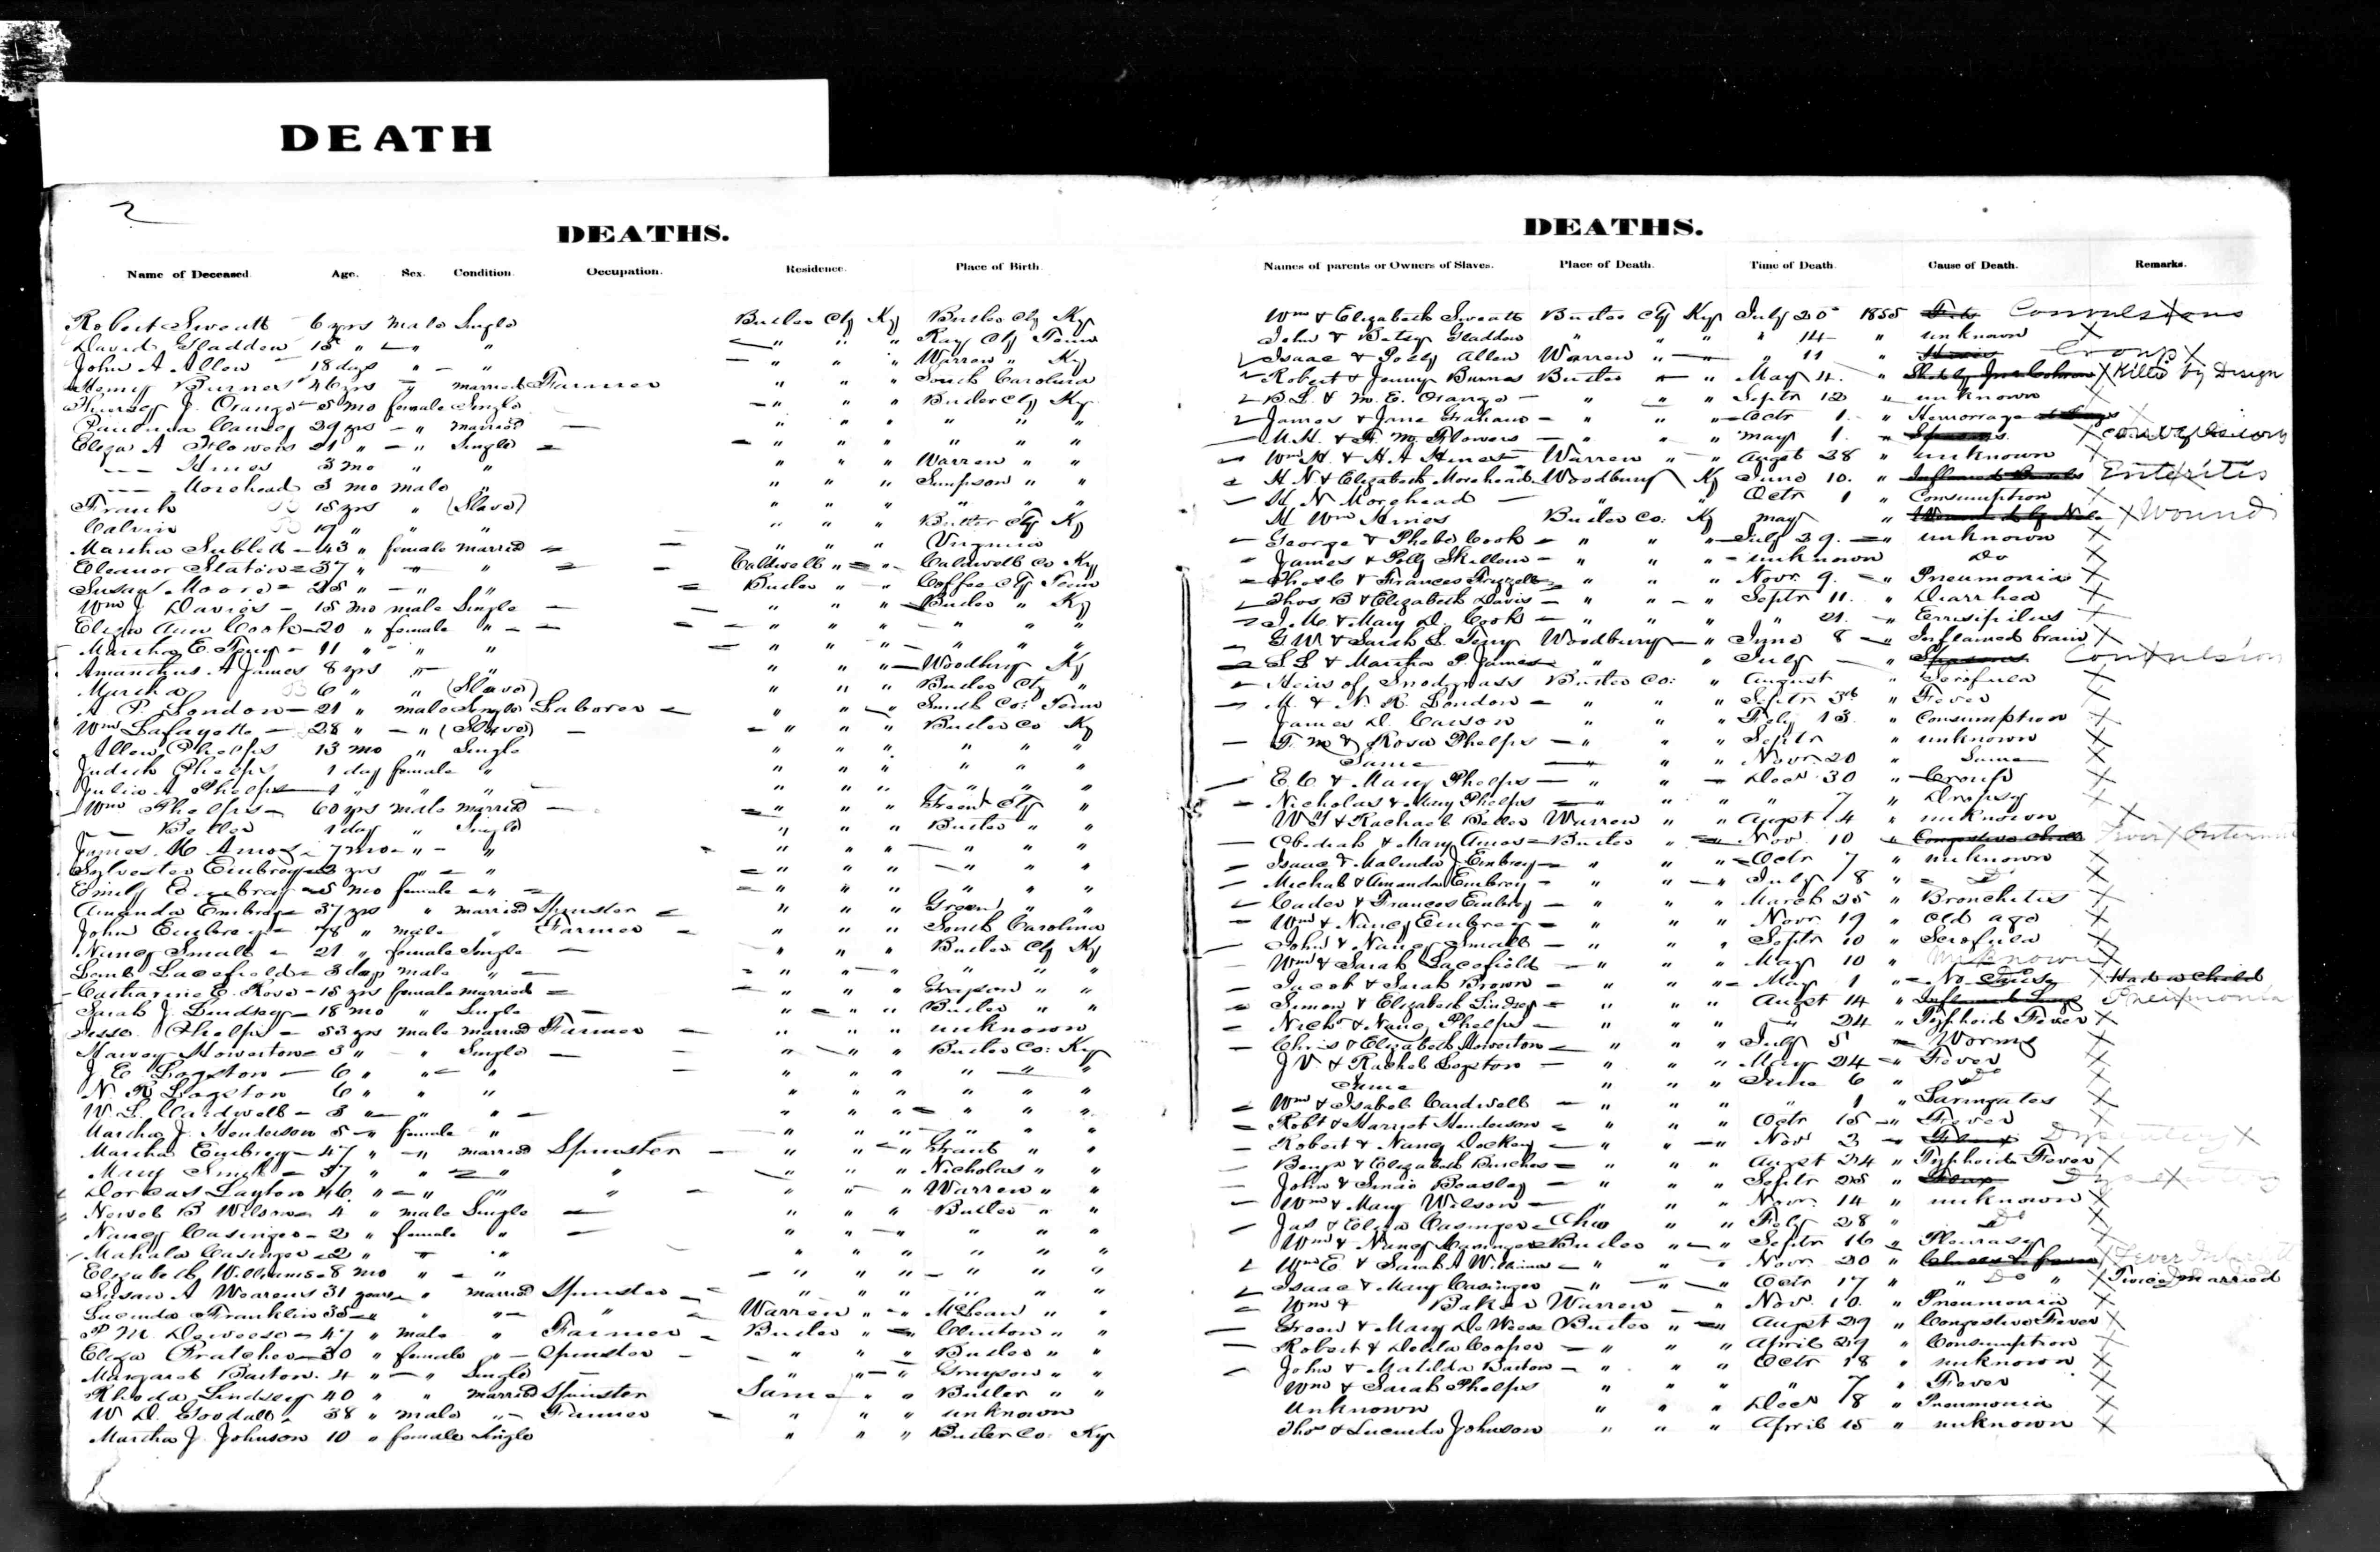 DEATH
2
DEATHS.
Name of Deceased. Age. Sex. Condition. Occupation. Residence. Place of Birth.
Robert Sweatt 6 yrs male Single Butler Cty Ky Butler Cty Ky
David Gladden 15 " " " " " " Ray Cty Tenn
John A Allen 18 days " " " " " " Warren " Ky
Henry Burnes 46 yrs " married Farmer " " " South Carolina
J. Orange 5 mo female Single " " " Butler Cty Ky
29 yrs " married " " " " " "
Eliza A Flowers 21 " " Single " " " " " "
Hines 3 mo " " " " " Warren " "
Morehead 3 mo male " " " " Simpson " "
Frank 18 yrs " (Slave) " " " " " "
Calvin 19 " " " " " " Butler Cty Ky
Martha Sublett 43 " female married " " " Virginia
Eleanor Staton 37 " " " Caldwell " " Caldwell Co Ky
Susan Moore 25 " " " Butler " " Coffee Cty Tenn
Wm J Davis 18 mo male Single " " " Butler " Ky
Eliza Ann Cook 20 " female " " " " " " "
Martha E. 11 " " " " " " " " "
A James 8 yrs " " " " " Woodbury Ky
Martha 6 " " (Slave) " " " Butler Cty "
A P. London 21 " male Single Laborer " " " Smith Co: Tenn
Wm Lafayette 28 " " (Slave) " " " Butler Co Ky
Allen Phelps 13 mo " Single " " " " " "
Judith Phelps 1 day female " " " " " " "
Julia A Phelps 1 " " " " " " " " "
Wm Phelps 60 yrs male married " " " Green Cty "
1 day " Single " " " Butler " "
James M Amos 7 mo " " " " " " " "
Sylvester Embrey yrs " " " " " " " "
Emily Embrey 5 mo female " " " " " " "
Amanda Embrey 37 yrs " married Spinster " " " Green " "
John Embrey 78 " male " Farmer " " " South Carolina
Nancy Small 21 " female Single " " " Butler Cty Ky
Lacefield 3 days male " " " " " " "
Catharine E. Rose 18 yrs female married " " " Grayson " "
Sarah J. Lindsey 18 mo " Single " " " Butler " "
Phelps 53 yrs male married Farmer " " " unknown
Harvey Howerton 3 " " Single " " " Butler Co: Ky
J. E Logston 6 " " " " " " " " "
N. R Logston 6 " " " " " " " " "
W. L. Cardwell 3 " " " " " " " " "
Martha J. Henderson 5 " female " " " " " " "
Martha Embrey 47 " " married Spinster " " " Grant " "
Mary Smith 37 " " " " " " " Nicholas " "
Dorkas Layton 46 " " " " " " " Warren " "
Newel B Wilson 4 " male Single " " " Butler " "
Nancy Casinger 2 " female " " " " " " "
Mahala Casinger 2 " " " " " " " " "
Elizabeth Williams 8 mo " " " " " " " "
Susan A 31 years " married Spinster " " " " " "
Lucinda Franklin 35 " " " " Warren " " McLean " "
P M. Deweese 47 " male " Farmer Butler " " Clinton " "
Eliza 30 " female " Spinster " " " Butler " "
Margaret Barton 4 " " Single " " " Grayson " "
Rhoda Lindsey 40 " " married Spinster Same " " Butler " "
W D. Goodall 38 " male " Farmer " " " unknown
Martha J. Johnson 10 " female Single " " " Butler Co: Ky
DEATHS.
Names of parents or Owners of Slaves. Place of Death. Time of Death. Cause of Death. Remarks.
Wm & Elizabeth Sweatt Butler Cty Ky July 20 1855 Convulsions
John & Betsy Gladden " " " " 14 " unknown X
Isaac & Polly Allen Warren " " " 11 " Croup X
Robert & Jenny Burnes Butler " " May 4. " X Killed by Design
B L. & M. E. Orange " " " Septr 12 " unknown X
James & Jane Graham " " " Octr 1. " Hemorrage X
M. H. & F. M. Flowers " " " May 1. " Spasms X convulsions
Wm H. & H. A Hines Warren " " Augst 28 " unknown X
H N & Elizabeth Morehead Woodbury Ky June 10. " Enteritis
H N Morehead " " Octr 1 " Consumption X
H Wm Hines Butler Co: Ky May " X Wound
George & Phebe Cook " " " July 29. " unknown X
James & Polly Skillern " " " unknown Do X
& Frances " " " Novr. 9. " Pneumonia X
Thos B & Elizabeth Davis " " " Septr 11. " Diarrhea X
J. M. & Mary D. Cook " " " " 21. " Errisipilus X
G. W. & Sarah L. Woodbury " June 8 " Inflamed brain X
S. L & Martha P. James " " July " Spasms Convulsion
Heirs of Snodgrass Butler Co: " August " Scrofula X
M. & N. R. London " " " Septr 3d " Fever X
James D. Carson " " " Feby 13. " Consumption X
F. M & Rosa Phelps " " " Septr " unknown X
Same " " Novr 20 " Same X
E. C & Mary Phelps " " " Decr 30 " Croup X
Nicholas & Mary Phelps " " " " 7 " Dropsy X
W & Rachael Warren " " Augst 4 " unknown X
Obediah & Mary Amos Butler " " Nov. 10 " Fever
Isaac & Malinda J. Embrey " " " Octr 7 " unknown X
Michal & Amanda Embrey " " " July 8 " Do X
& Frances Embrey " " " March 25 " Bronchitis X
Wm & Nancy Embrey " " " Novr 19 " old age X
John & Nancy Small " " " Septr 10 " Scrofula X
Wm & Sarah Lacefield " " " May 10 " unknown X
Jacob & Sarah Brown " " " May 1 " No Had a Child
Simon & Elizabeth Lindsey " " " Augst 14 " Pneumonia
& Nancy Phelps " " " " 24 " Typhoid Fever X
Chris & Elizabeth Howerton " " " July 5 " Worms X
J V. & Rachel Logston " " " May 24 " Fever X
Same " " " June 6 " Do X
Wm & Isabel Cardwell " " " " 1 " X
Robt & Harriet Henderson " " " Octr 15 " Fever X
Robert & Nancy " " " Nov 3 " Dysentery X
& Elizabeth " " " Augst 24 " Typhoid Fever X
John & Beasley " " " Septr 25 " Flux
Wm & Mary Wilson " " " Novr. 14 " unknown X
Jas & Eliza Casinger Ohio " " Feby 28 " Do X
Wm & Nancy Casinger Butler " " Septr 16 " Pleurasy X
Wm E & Sarah A " " " Novr 20 " X Fever
Isaac & Mary Casinger " " " Octr 17 " " Do " Twice Married
Wm & Baker Warren " " Nov. 10. " Pneumonia X
Green & Mary De Weese Butler " " Augst 29 " Congestive Fever X
Robert & Delila Cooper " " " April 29 " Consumption X
John & Matilda Barton " " " Octr 18 " unknown X
Wm & Sarah Phelps " " " " 7 " Fever X
Unknown " " " Decr 18 " Pneumonia X
Thos & Lucinda Johnson " " " April 15 " unknown X